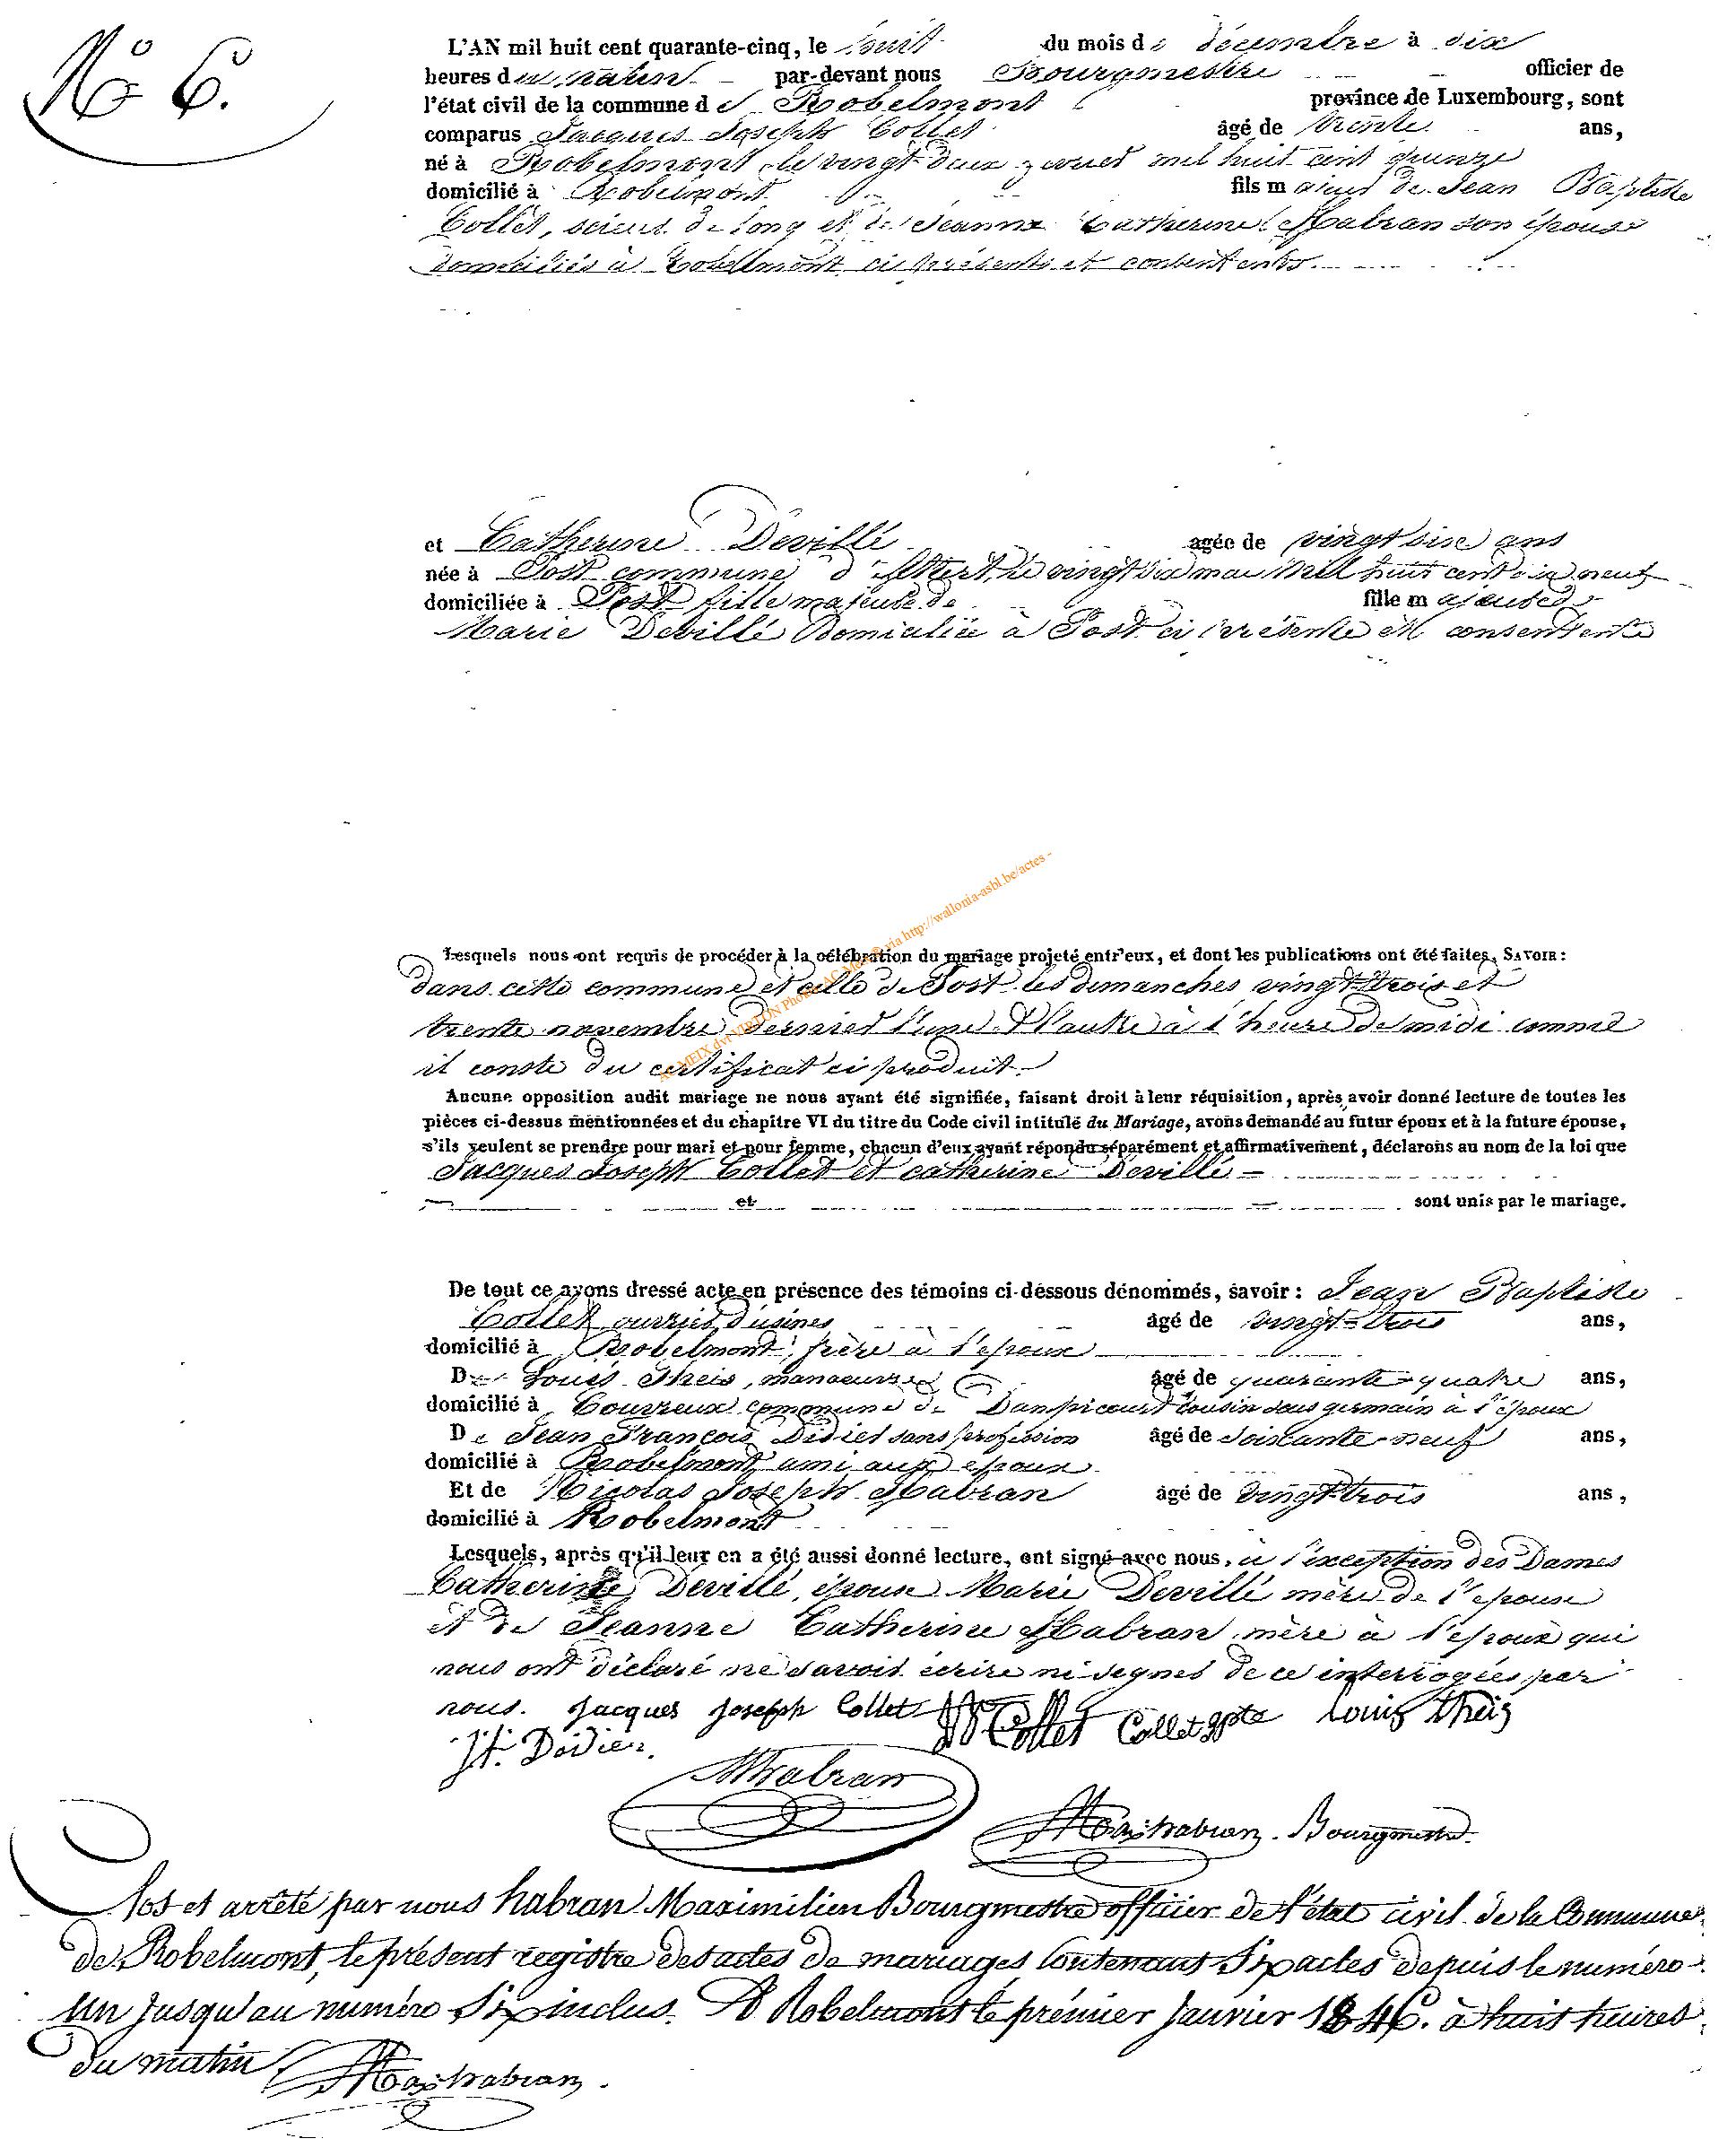 N° 6.
L'AN mil huit cent quarante-cinq, le huit du mois de décembre à dix
heures du matin par-devant nous Bourgmestre officier de
l'état civil de la commune de Robelmont province de Luxembourg, sont
comparus Jacques Joseph Collet âgé de trente ans,
né à Robelmont le vingt deux mil huit cent quinze
domicilié à Robelmont fils majeur de Jean Baptiste
Collet, scieur de long et de Jeanne Catherine Habran son épouse
domiciliés à Robelmont ci présents et consentents.
et Catherine Devillé agée de vingt six ans
née à Post commune d'Attert, le vingt six mai mil huit cent dix neuf
domiciliée à Post fille majeure de fille majeure de
Marie Devillé Domiciliée à Post ci présente et consentente
Lesquels nous ont requis de procéder à la célébration du mariage projeté entr'eux, et dont les publications ont été faites, SAVOIR:
dans cette commune et celle de Post les dimanches vingt-trois et
trente novembre dernier l'une & l'autre à l'heure de midi comme
il conste du certificat ci produit.
AC MEIX dvt VIRTON Photos AC Meix® via http://wallonia-asbl.be/actes -
Aucune opposition audit mariage ne nous ayant été signifiée, faisant droit à leur réquisition, après avoir donné lecture de toutes les
pièces ci-dessus mentionnées et du chapitre VI du titre du Code civil intitulé du Mariage, avons demandé au futur époux et à la future épouse,
s'ils veulent se prendre pour mari et pour femme, chacun d'eux ayant répondu séparément et affirmativement, déclarons au nom de la loi que
Jacques Joseph Collet et catherine Devillé
et sont unis par le mariage.
De tout ce avons dressé acte en présence des témoins ci-dessous dénommés, savoir: Jean Baptiste
Collet ouvrier d'usines âgé de vingt-trois ans,
domicilié à Robelmont, frère à l'époux
De Louis Theis, manoeuvre âgé de quarante-quatre ans,
domicilié à Couvreux commune de Dampicourt cousin sous germain à l'époux
De Jean François Didier sans profession âgé de soixante-neuf ans,
domicilié à Robelmont ami aux époux
Et de Nicolas Joseph Habran âgé de vingt-trois ans,
domicilié à Robelmont
Lesquels, après qu'il leur en a été aussi donné lecture, ont signé avec nous, à l'exception des Dames
Catherine Devillé, épouse Marie Devillé mère de l'épouse
et de Jeanne Catherine Habran mère à l'époux qui
nous ont déclaré ne savoir écrire ni segner de ce interrogées par
nous. Jacques Joseph Collet Collet Collet jpte Louis theis
J. f. Didier.
Nhabran
Max habran. Bourgmestre
Clos et arrêté par nous habran Maximilien Bourgmestre officier de l'état civil de la Commune
de Robelmont, le présent registre des actes de mariages Contenant Six actes depuis le numéro
Un jusqu'au numéro Six inclus. A Robelmont le prémier Janvier 1846. à huit heures
du matin
Max habran.